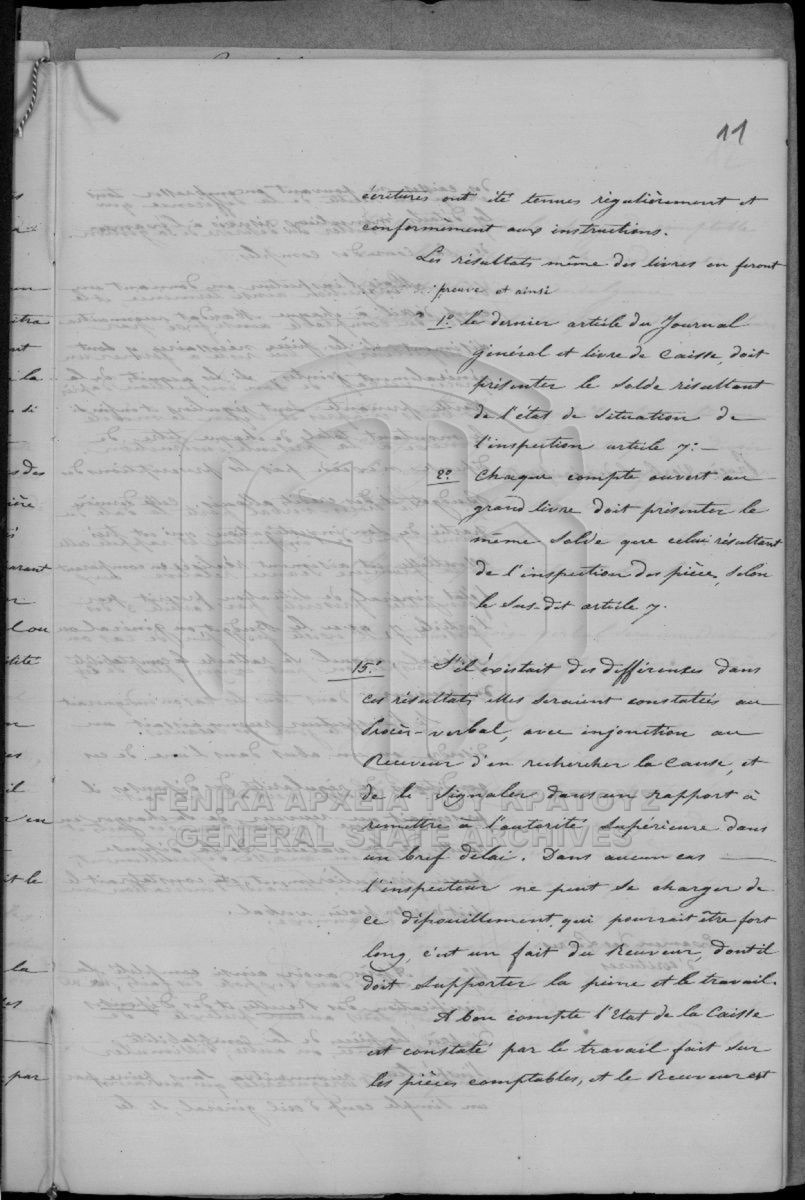 11
écritures ont été tenues régulièrement et
conformément aux instructions.
Les résultats même des livres en feront
preuve et ainsi
1º le dernier article du Journal
général et livre de Caisse, doit
présenter le solde résultant
de l'état de situation de
l'inspection article 7: —
2º Chaque compte ouvert au
grand livre doit présenter le
même solde que celui résultant
de l'inspection des pièce, selon
le sus-dit article 7.
15º S'il éxistait des différences dans
ces résultats elles seraient constatées au
Procès-verbal, avec injonction au
Receveur d'en rechercher la cause, et
de le signaler dans un rapport à
remettre à l'autorité supérieure dans
un bref délai. Dans aucun cas —
l'inspecteur ne peut se charger de
ce dépouillement, qui pourrait être fort
long, c'est un fait du Receveur, dont il
doit supporter la peine et le travail.
A bon compte l'Etat de la Caisse
est constaté par le travail fait sur
les pièces comptables, et le Receveur est
ΓΕΝΙΚΑ ΑΡΧΕΙΑ ΤΟΥ ΚΡΑΤΟΥΣ
GENERAL STATE ARCHIVES